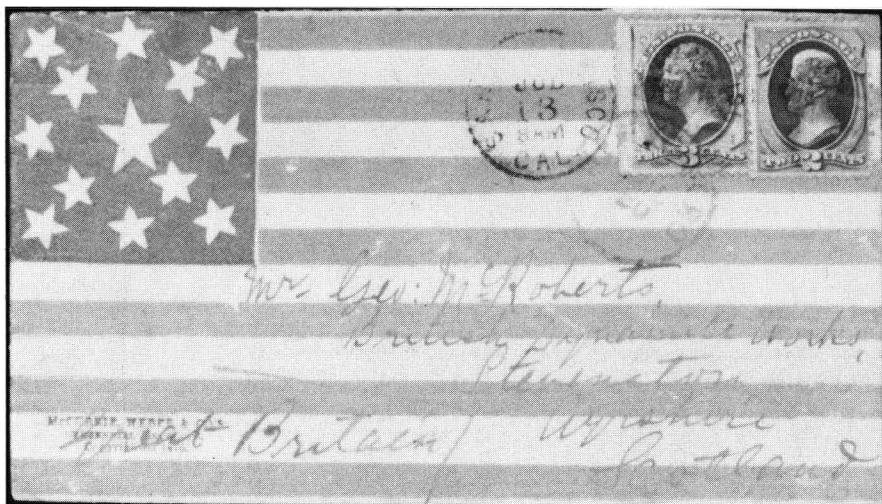 JUL
13
8 AM
CAL.
THREE CENTS
TWO CENTS
Mr Geo: McRoberts,
British Dynamite Works,
Stevenston
Ayrshire
Scotland
Great Britain